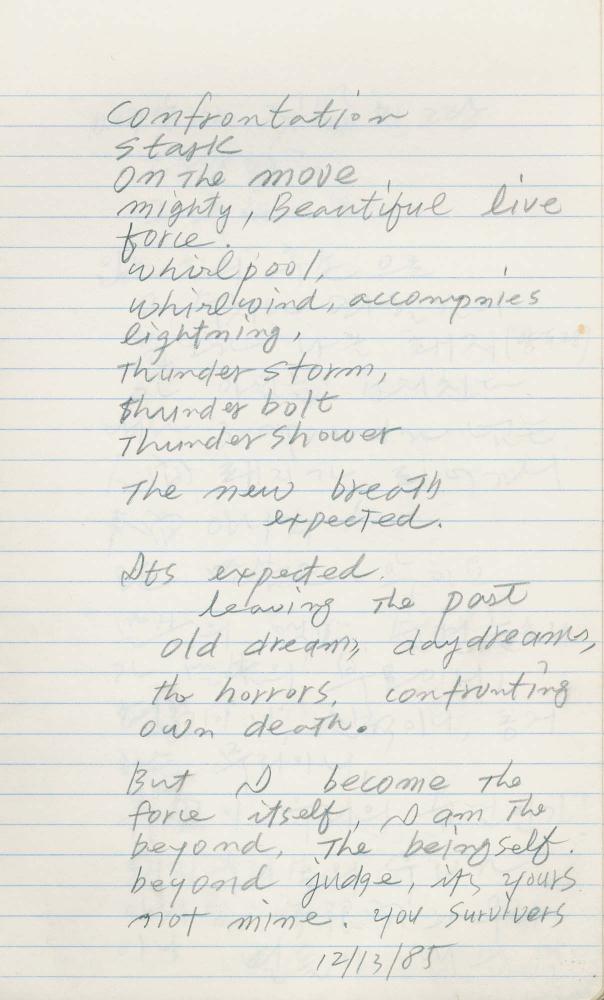 Confrontation
Stark
On The move
mighty, Beautiful live
force.
whirlpool,
whirlwind, accompnies
lightning,
Thunder storm,
thunder bolt
Thunder Shower
The new breath
expected.
Its expected.
leaving the past
old dream, daydreams,
the horrors, confrunting
own death.
But I become the
force itself, I am The
beyond, The beingself.
beyond judge, its yours
not mine. you Survivers
12/13/85